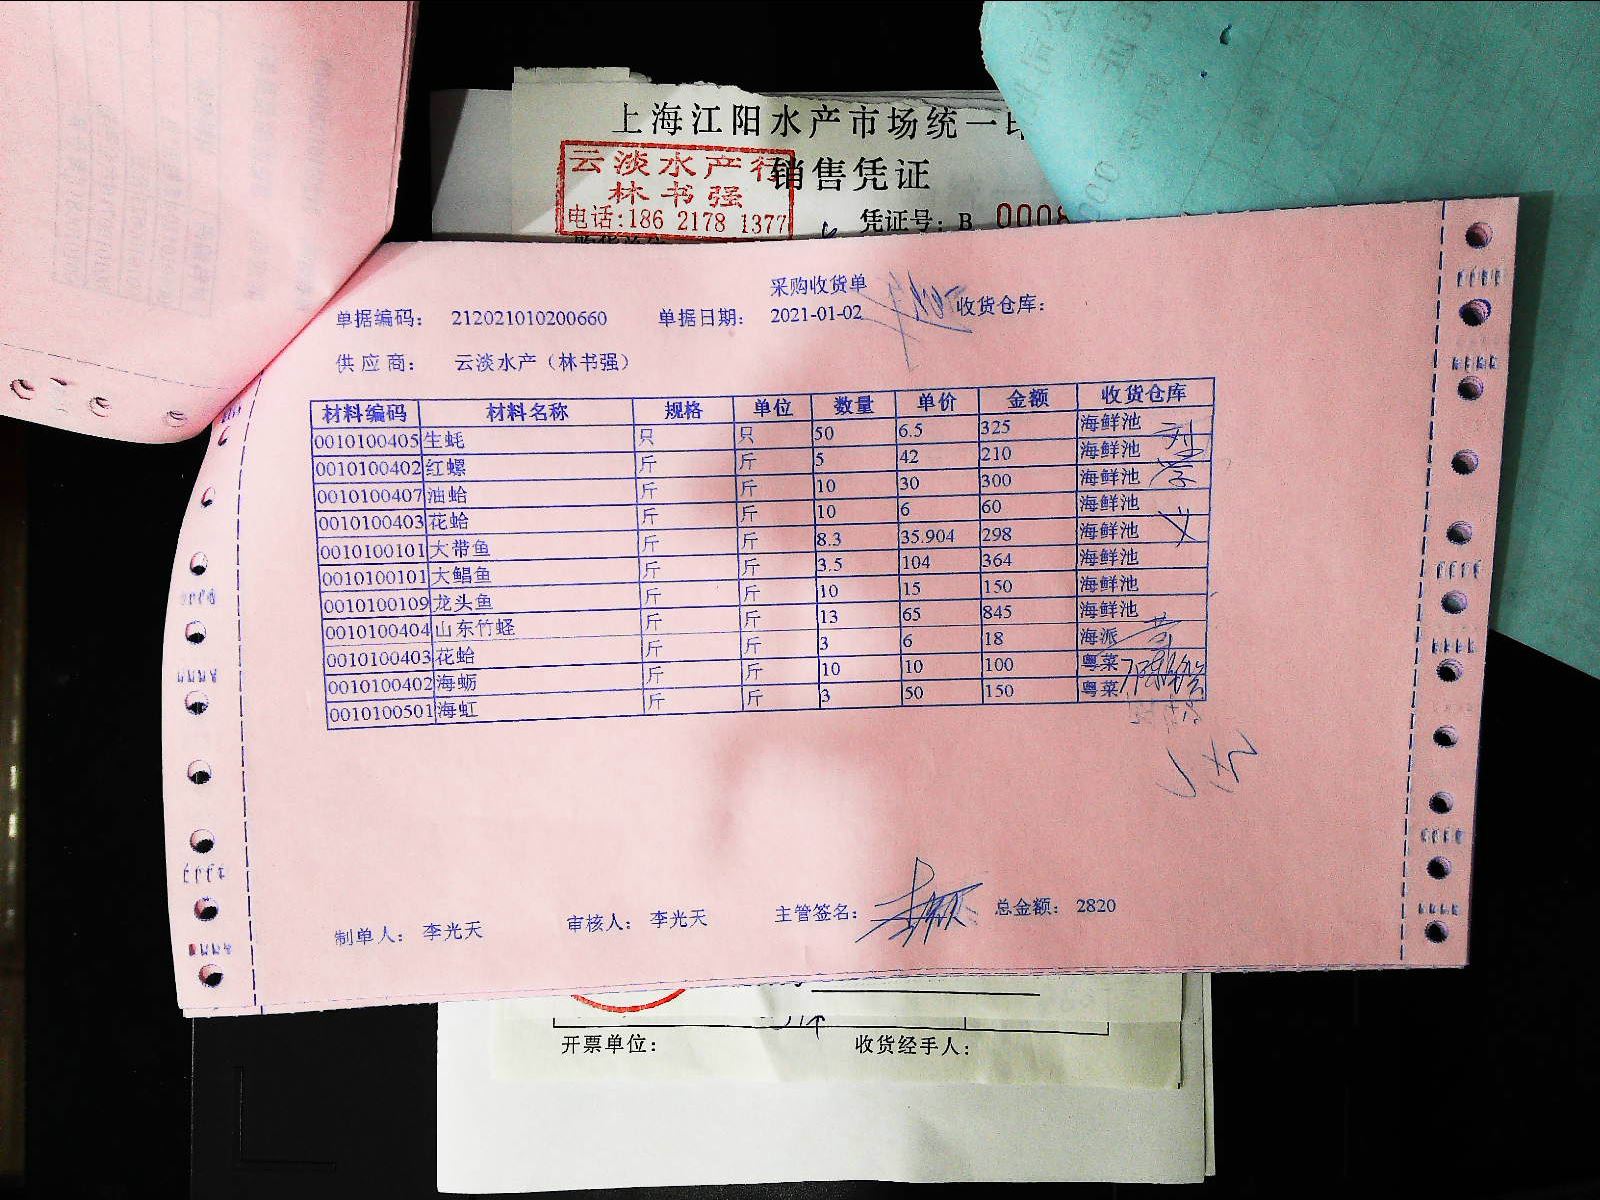 上海江阳水产市场统一
销售凭证
云淡水产行
林书强
电话:186 2178 1377
凭证号: B 0008
采购收货单
单据编码: 212021010200660 单据日期: 2021-01-02 收货仓库:
供应商: 云淡水产（林书强）
材料编码 材料名称 规格 单位 数量 单价 金额 收货仓库
0010100405 生蚝 只 只 50 6.5 325 海鲜池
0010100402 红螺 斤 斤 5 42 210 海鲜池
0010100407 油蛤 斤 斤 10 30 300 海鲜池
0010100403 花蛤 斤 斤 10 6 60 海鲜池
0010100101 大带鱼 斤 斤 8.3 35.904 298 海鲜池
0010100101 大鲳鱼 斤 斤 3.5 104 364 海鲜池
0010100109 龙头鱼 斤 斤 10 15 150 海鲜池
0010100404 山东竹蛏 斤 斤 13 65 845 海鲜池
0010100403 花蛤 斤 斤 3 6 18 海派
0010100402 海蛎 斤 斤 10 10 100 粤菜
0010100501 海虹 斤 斤 3 50 150 粤菜
制单人: 李光天 审核人: 李光天 主管签名: 总金额: 2820
开票单位: 收货经手人: